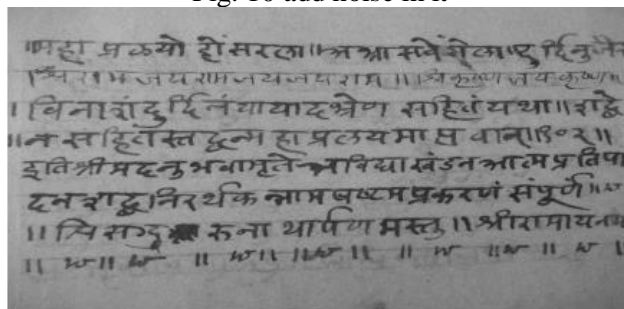 Fig. add noise in it
॥महा प्रळयो हों सरला॥
श्रीराम जयराम जयजयराम॥ श्रीकृष्ण जयकृष्ण
। विनाशं दुर्दिनं यायादभ्रेण सहितं यथा॥ शब्दे
॥न सहितस्तद्वन्महाप्रलयमाप्तवान्॥१०२॥
इति श्रीमदनुभवामृते अविद्याखंडन आत्मप्रतिपा
दन शब्द निरर्थक नाम षष्टम प्रकरणं संपूर्णं॥
॥श्रि सद्गुरुनाथार्पण मस्तु॥ श्रीरामायनम